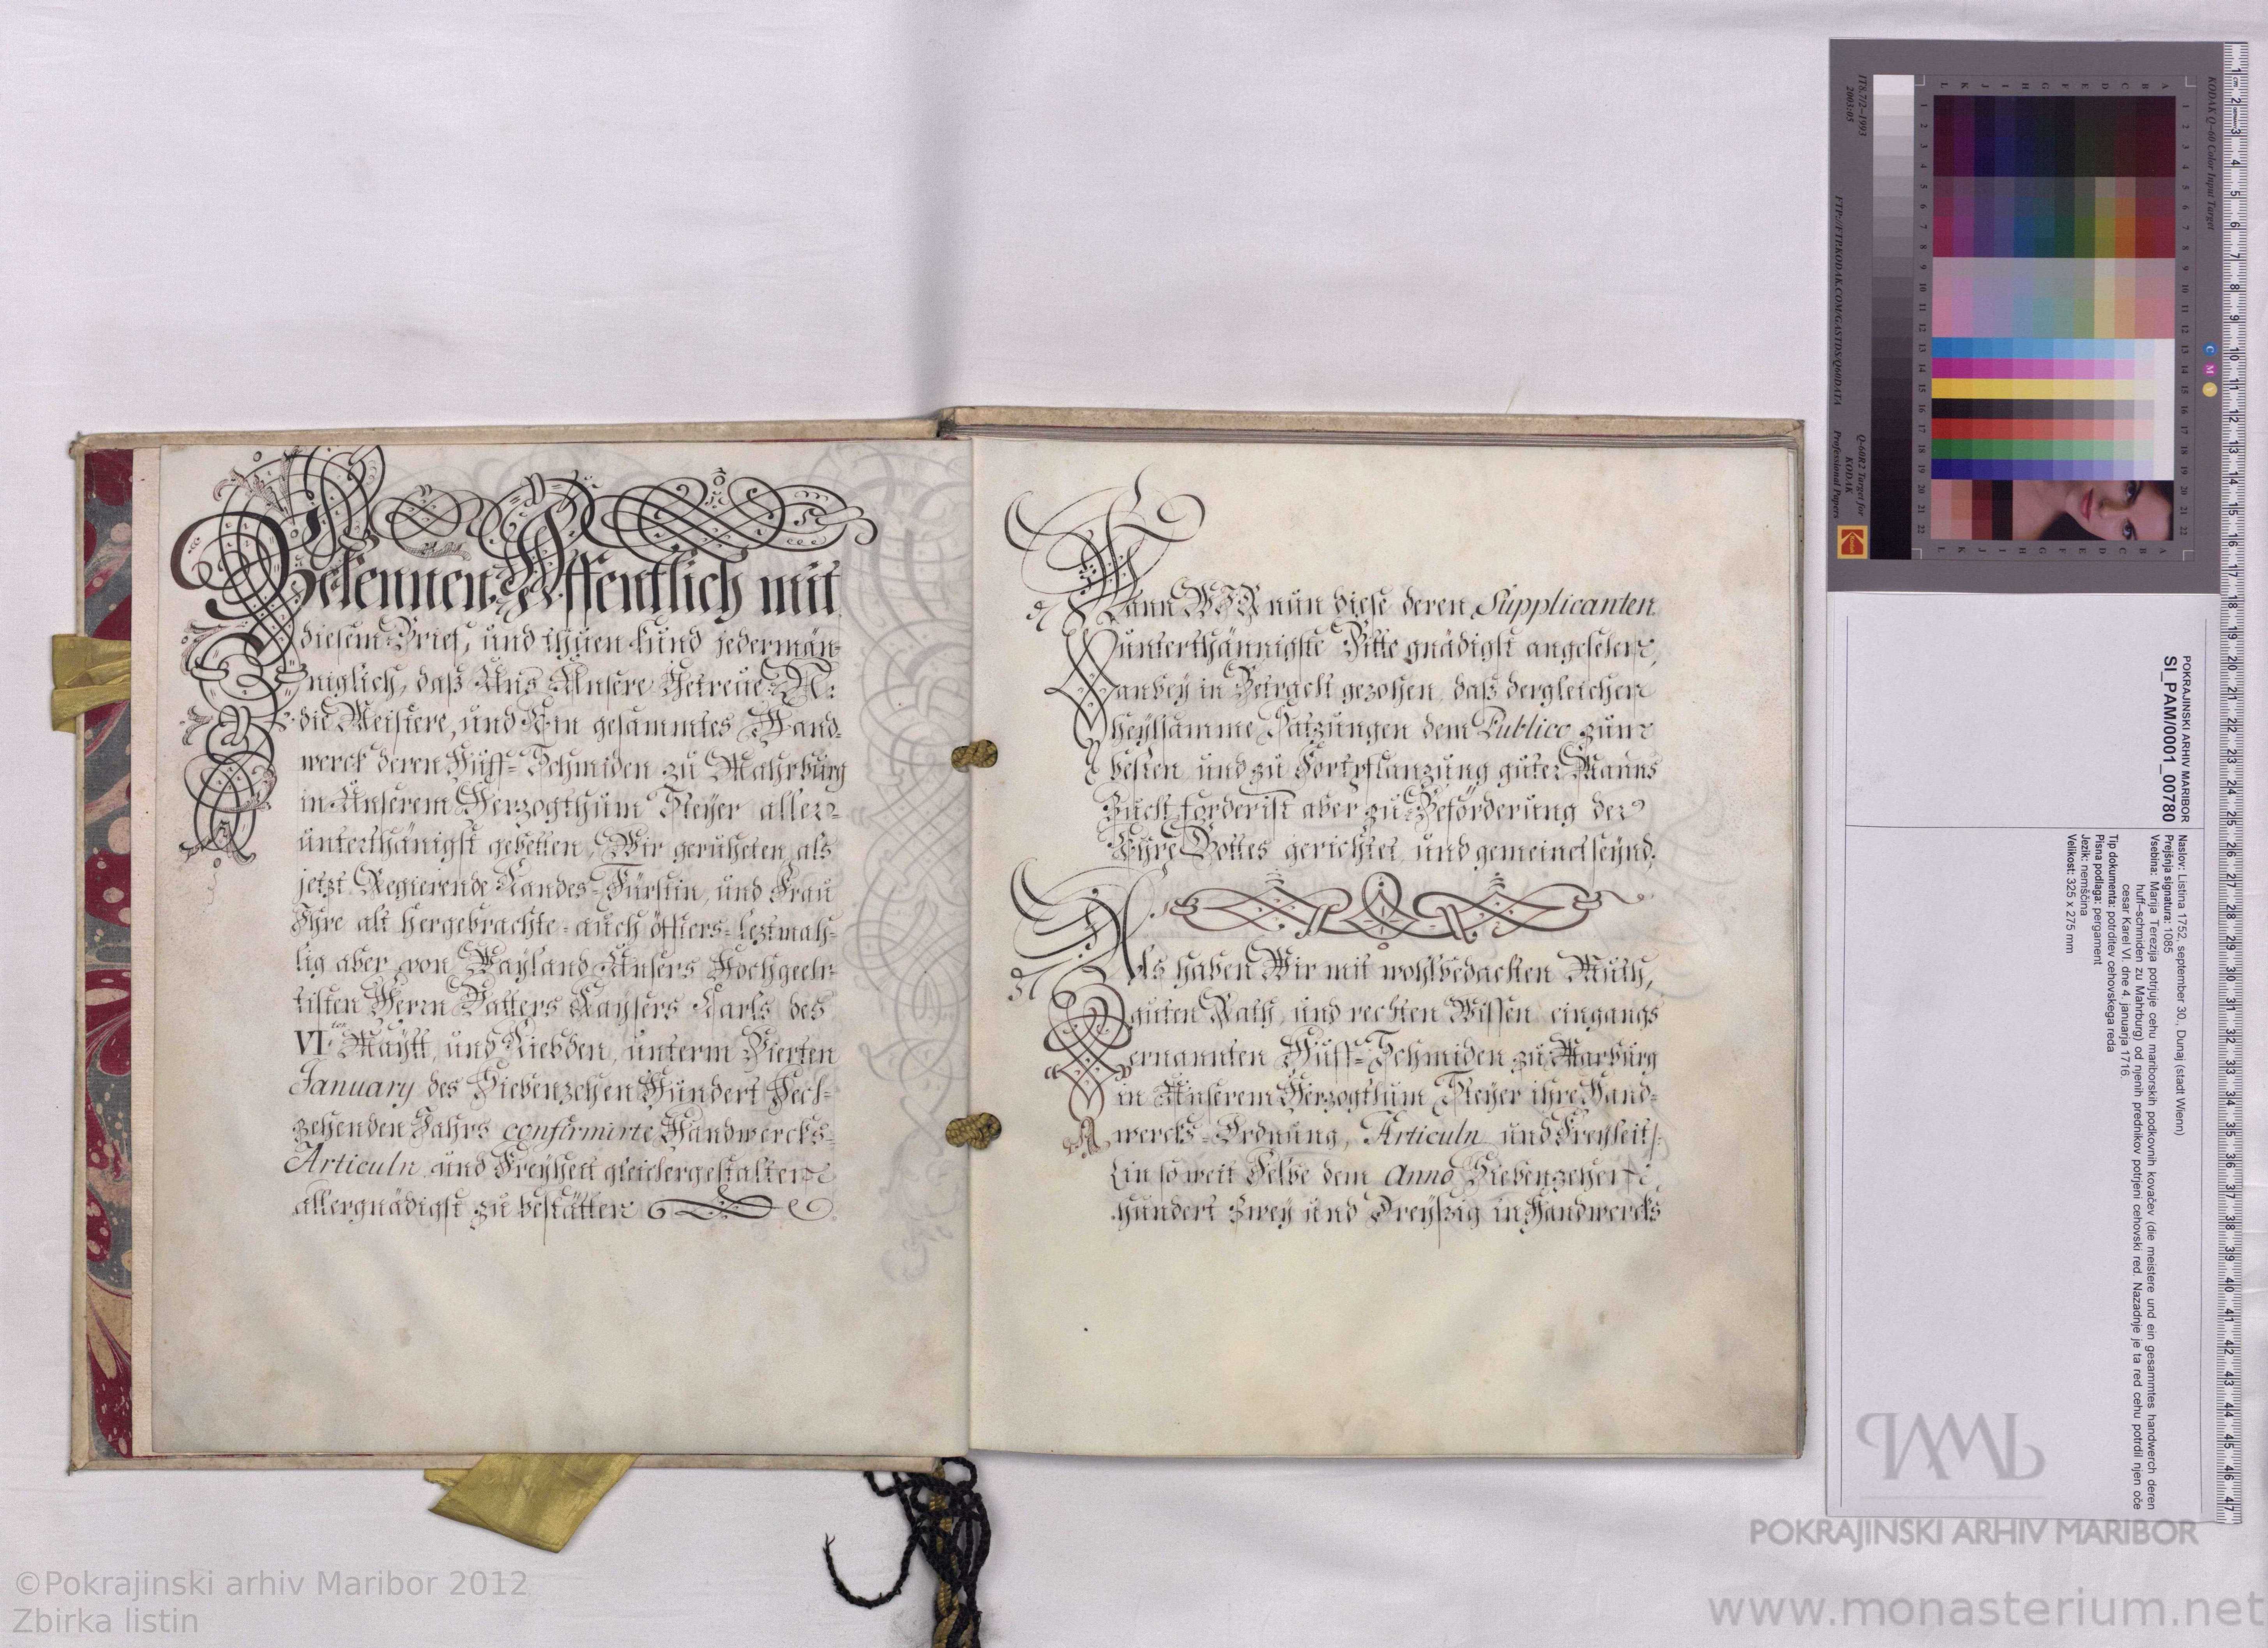 Bekennen Öffentlich mit
diesem Brief, und thuen kund jedermän-
niglich, daß Uns Unsere Getreüe N:
die Meistere, und Ein gesammtes Hand-
werck deren Huff-Schmiden zu Mahrburg
in Unserem Herzogthum Steyer aller-
unterthänigst gebetten, Wir geruheten als
jetzt Regierende Landes-Fürstin, und Frau
Ihre alt hergebrachte- auch öffters- leztmah-
lig aber von Wayland Unsers Hochgeehr-
tisten Herrn Vatters Kaysers Carls des
VI.ten Maytt, und Liebden, unterm Vierten
January des Siebenzehen Hundert Sech-
zehenden Jahrs confirmirte Handwercks-
Articuln und Freyheit gleichergestalten
allergnädigst zu bestätten
Wann WIR nun diese deren Supplicanten
unterthännigste Bitte gnädigst angesehen,
anbey in Betracht gezohen, daß dergleichen
heylsamme Satzungen dem Publico zum
besten und zu Fortpflanzung guter Manns
Zucht forderist aber zu Beförderung der
Ehre Gottes gerichtet, und gemeinet seynd;
Als haben Wir mit wohlbedachten Muth,
guten Rath, und rechten Wissen eingangs
ernannten Huff-Schmiden zu Marburg
in Unserem Herzogthum Steyer ihre Hand-
wercks-Ordnung, Articuln und Freyheit/:
in so weit Selbe dem Anno Siebenzehen
hundert Zwey und Dreyßig in Handwercks
KODAK Q-60 Color Input Target
IT8.7/2-1993
2003:05
FTP://FTP.KODAK.COM/GASTDS/Q60DATA
Q-60R2 Target for
KODAK
Professional Papers
POKRAJINSKI ARHIV MARIBOR
SI_PAM/0001_00780
Naslov: Listina 1752, september 30., Dunaj (stadt Wienn)
Prejšnja signatura: 1085
Vsebina: Marija Terezija potrjuje cehu mariborskih podkovnih kovačev (die meistere und ein gesammtes handwerch deren
huff-schmiden zu Mahrburg) od njenih prednikov potrjeni cehovski red. Nazadnje je ta red cehu potrdil njen oče
cesar Karel VI. dne 4. januarja 1716
Tip dokumenta: potrditev cehovskega reda
Pisna podlaga: pergament
Jezik: nemščina
Velikost: 325 x 275 mm
PAM
POKRAJINSKI ARHIV MARIBOR
©Pokrajinski arhiv Maribor 2012
Zbirka listin
www.monasterium.net